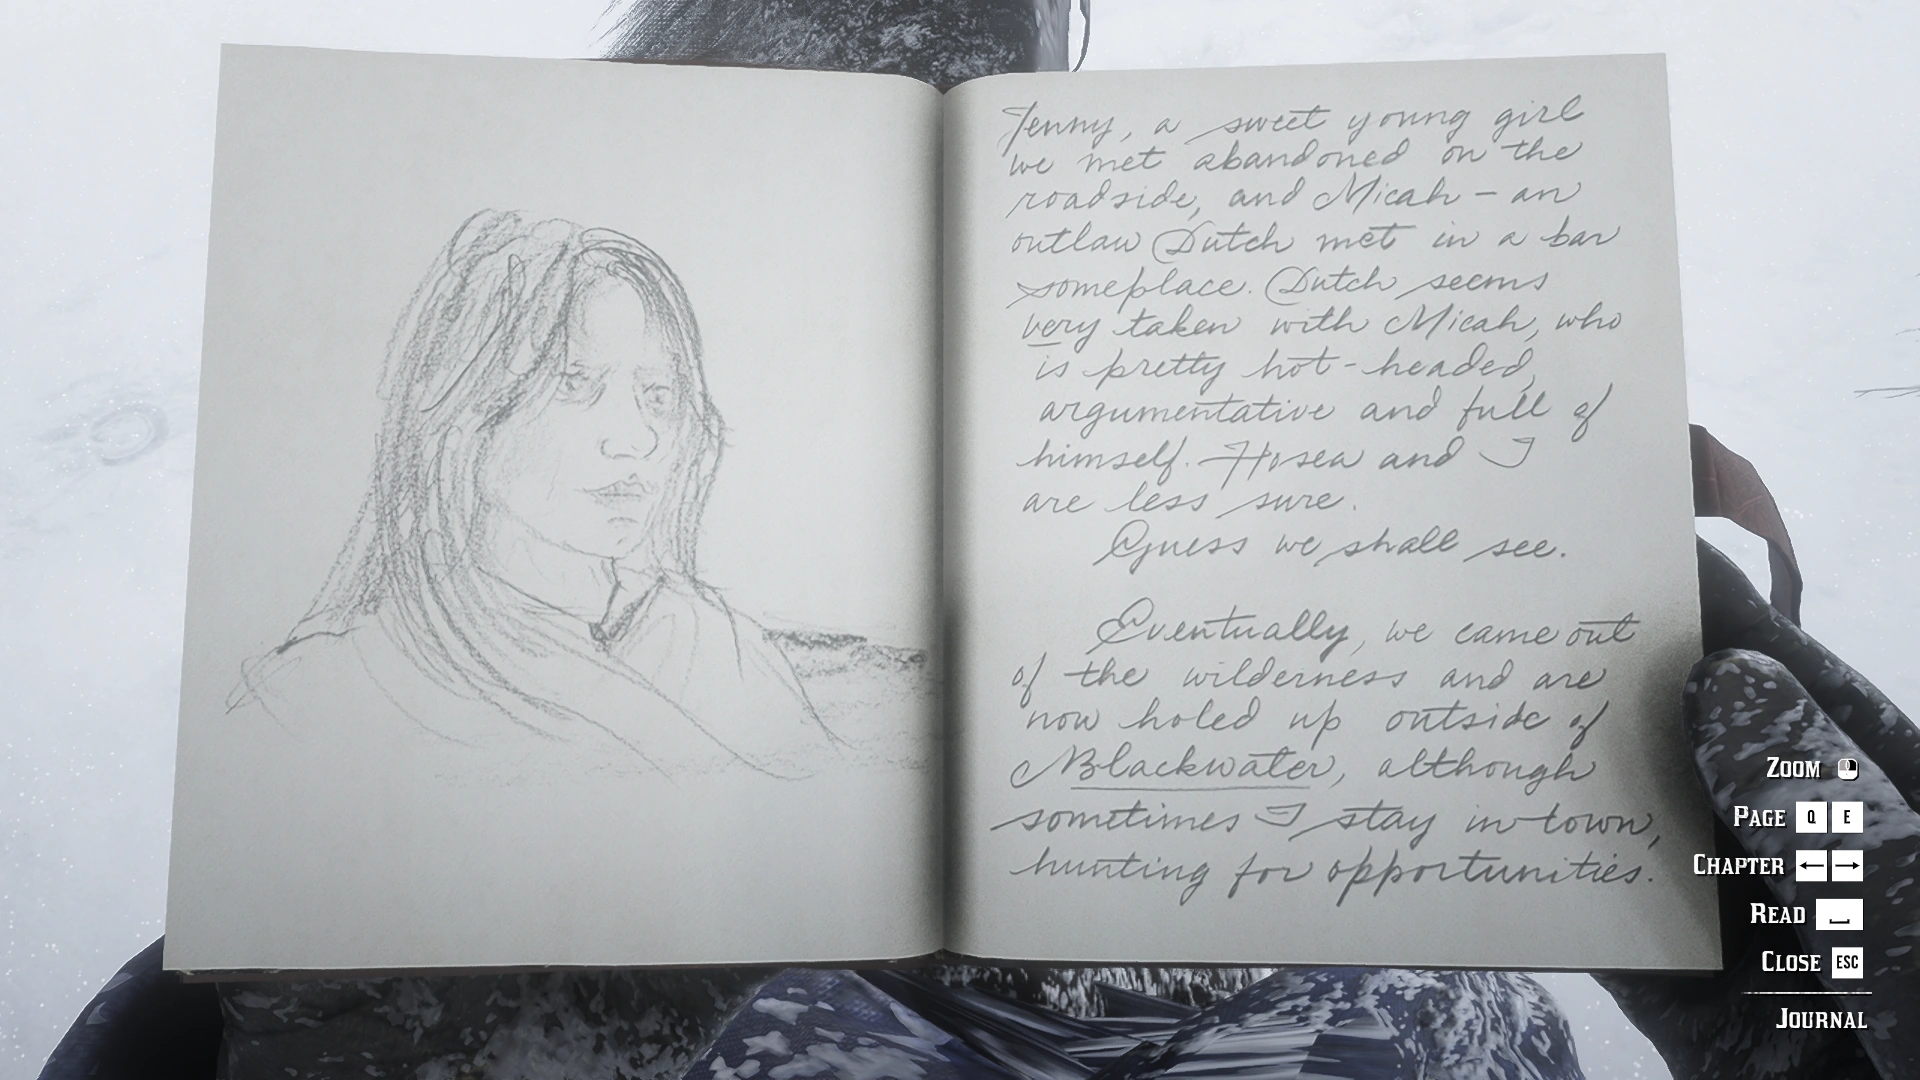 Jenny, a sweet young girl
we met abandoned on the
roadside, and Micah – an
outlaw Dutch met in a bar
someplace. Dutch seems
very taken with Micah, who
is pretty hot-headed,
argumentative and full of
himself. Hosea and I
are less sure.
Guess we shall see.
Eventually, we came out
of the wilderness and are
now holed up outside of
Blackwater, although
sometimes I stay in town,
hunting for opportunities.
ZOOM
PAGE Q E
CHAPTER ← →
READ
CLOSE ESC
JOURNAL